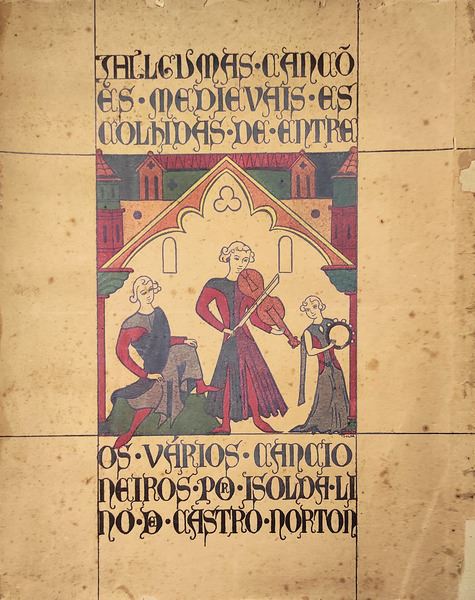 ALGUMAS · CANÇÕ
ES · MEDIEVAIS · ES
COLHIDAS · DE · ENTRE
OS · VÁRIOS · CANCIO
NEIROS · POR · ISOLDA · LI
NO · D · CASTRO · NORTON